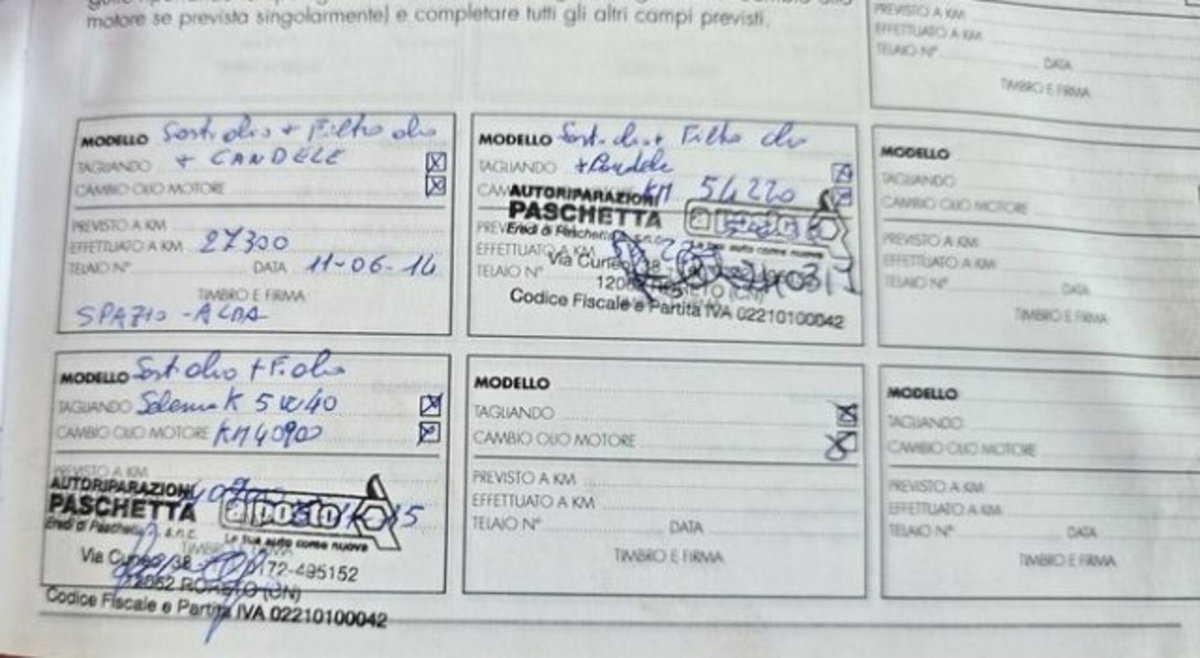 motore se prevista singolarmente) e completare tutti gli altri campi previsti.
PREVISTO A KM
EFFETTUATO A KM
TELAIO N°
DATA
TIMBRO E FIRMA
MODELLO Sost olio + Filtro olio
TAGLIANDO + CANDELE
CAMBIO OLIO MOTORE
PREVISTO A KM
EFFETTUATO A KM 27300
TELAIO N° DATA 11-06-14
TIMBRO E FIRMA
SPAZIO - ALBA
MODELLO Sost olio + Filtro olio
TAGLIANDO + Candele
KM 54220
AUTORIPARAZIONI
PASCHETTA a posto
Eredi di Paschetta s.n.c. La tua auto come nuova
EFFETTUATO A KM
Via Cuneo, 38
TELAIO N°
12062 RORETO (CN)
Codice Fiscale e Partita IVA 02210100042
MODELLO
TAGLIANDO
CAMBIO OLIO MOTORE
PREVISTO A KM
EFFETTUATO A KM
TELAIO N°
DATA
TIMBRO E FIRMA
MODELLO Sost olio + F. olio
TAGLIANDO Selenia K 5W40
CAMBIO OLIO MOTORE KM 40900
PREVISTO A KM
AUTORIPARAZIONI
PASCHETTA a posto
Eredi di Paschetta s.n.c. La tua auto come nuova
TIMBRO E FIRMA
Via Cuneo, 38 0172-495152
12062 RORETO (CN)
Codice Fiscale e Partita IVA 02210100042
MODELLO
TAGLIANDO
CAMBIO OLIO MOTORE
PREVISTO A KM
EFFETTUATO A KM
TELAIO N° DATA
TIMBRO E FIRMA
MODELLO
TAGLIANDO
CAMBIO OLIO MOTORE
PREVISTO A KM
EFFETTUATO A KM
TELAIO N° DATA
TIMBRO E FIRMA